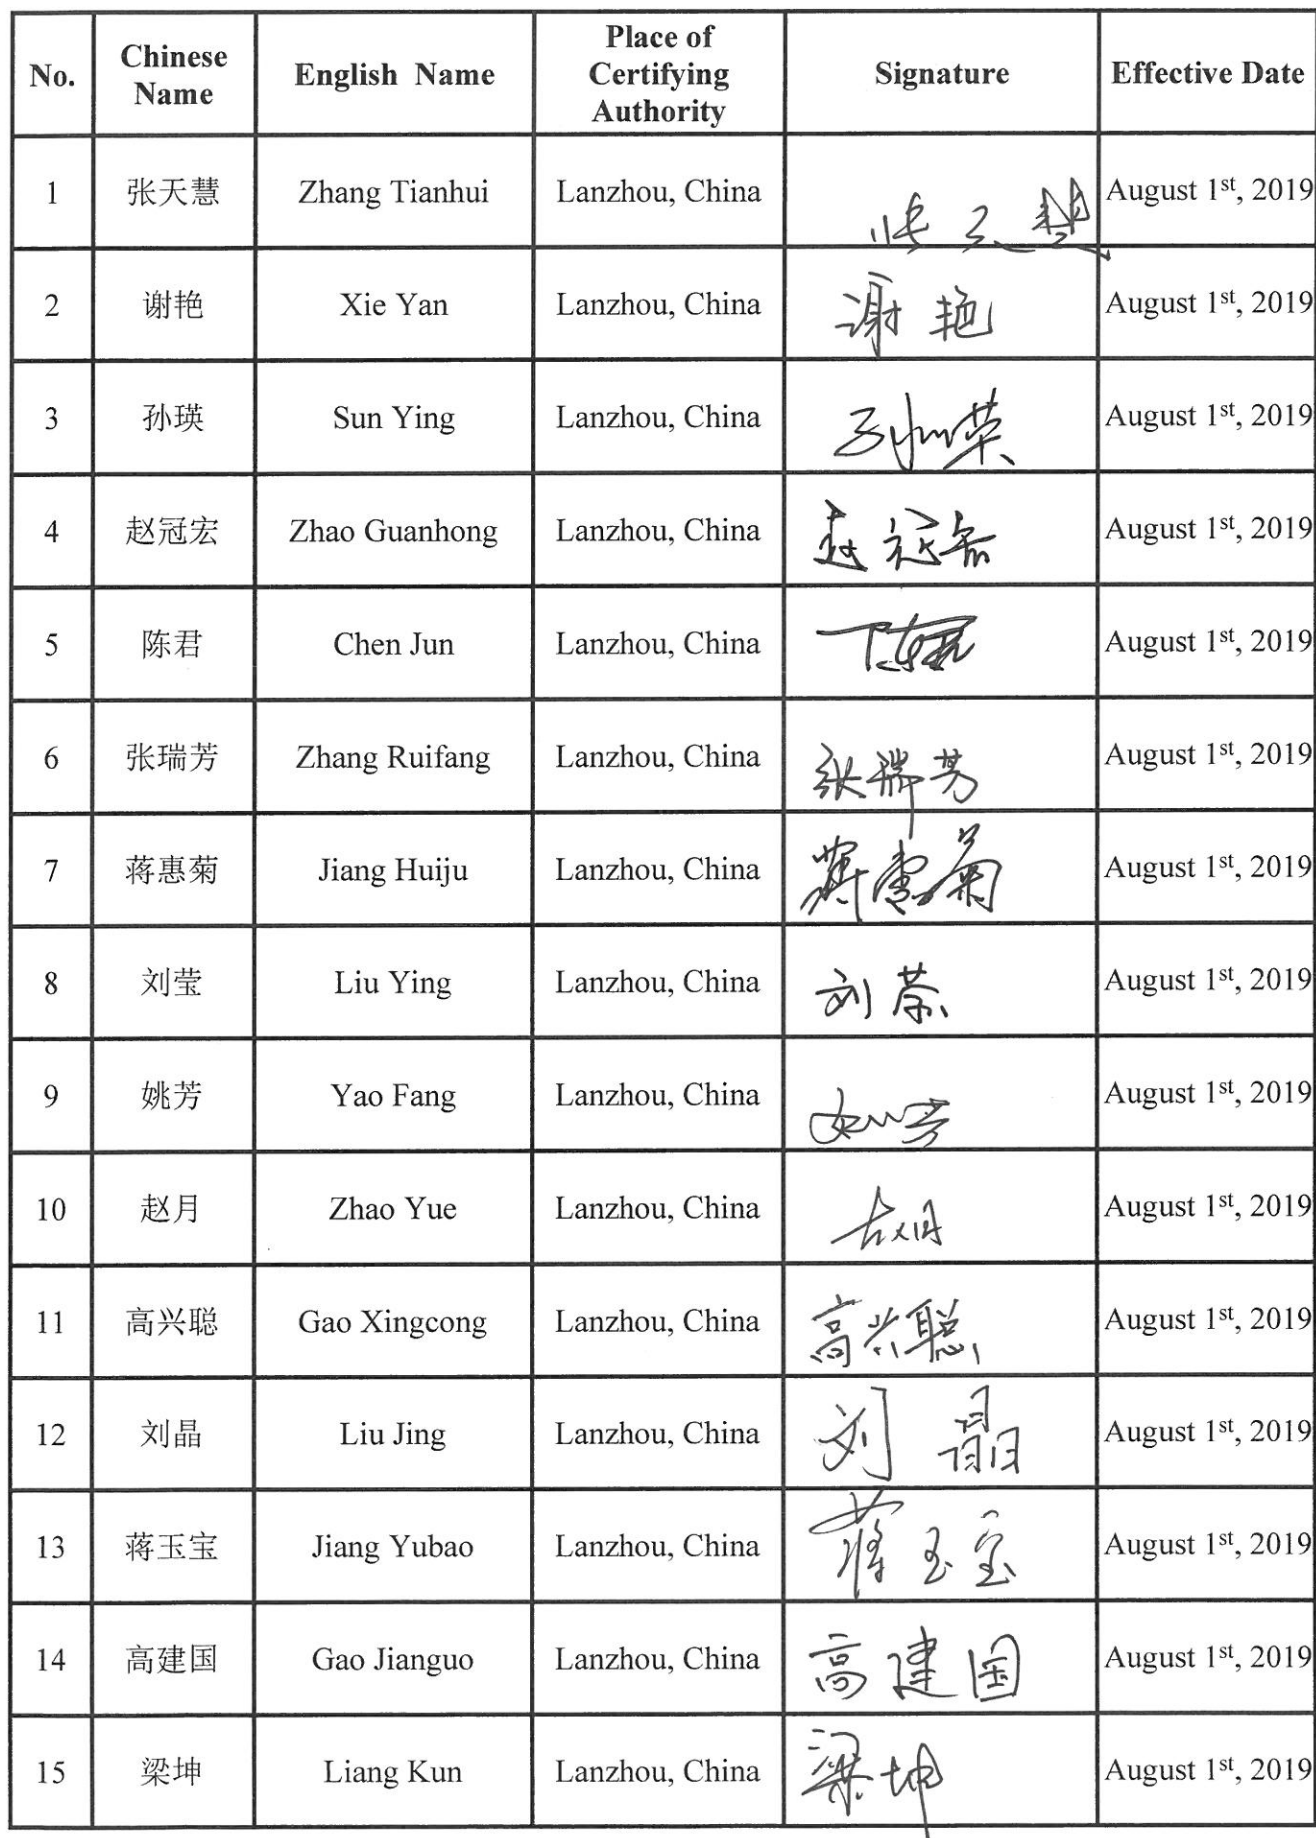 No. Chinese Name English Name Place of Certifying Authority Signature Effective Date
1 张天慧 Zhang Tianhui Lanzhou, China 张天慧 August 1st, 2019
2 谢艳 Xie Yan Lanzhou, China 谢艳 August 1st, 2019
3 孙瑛 Sun Ying Lanzhou, China 孙瑛 August 1st, 2019
4 赵冠宏 Zhao Guanhong Lanzhou, China 赵冠宏 August 1st, 2019
5 陈君 Chen Jun Lanzhou, China 陈君 August 1st, 2019
6 张瑞芳 Zhang Ruifang Lanzhou, China 张瑞芳 August 1st, 2019
7 蒋惠菊 Jiang Huiju Lanzhou, China 蒋惠菊 August 1st, 2019
8 刘莹 Liu Ying Lanzhou, China 刘莹 August 1st, 2019
9 姚芳 Yao Fang Lanzhou, China 姚芳 August 1st, 2019
10 赵月 Zhao Yue Lanzhou, China 赵月 August 1st, 2019
11 高兴聪 Gao Xingcong Lanzhou, China 高兴聪 August 1st, 2019
12 刘晶 Liu Jing Lanzhou, China 刘晶 August 1st, 2019
13 蒋玉宝 Jiang Yubao Lanzhou, China 蒋玉宝 August 1st, 2019
14 高建国 Gao Jianguo Lanzhou, China 高建国 August 1st, 2019
15 梁坤 Liang Kun Lanzhou, China 梁坤 August 1st, 2019